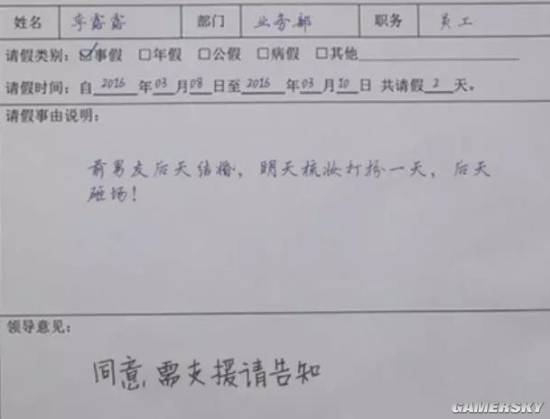 姓名 李露露 部门 业务部 职务 员工
请假类别：☑事假 □年假 □公假 □病假 □其他
请假时间：自2016年03月08日至2016年03月10日 共请假2天。
请假事由说明：
前男友后天结婚，明天梳妆打扮一天，后天
砸场！
领导意见：
同意，需支援请告知
GAMERSKY